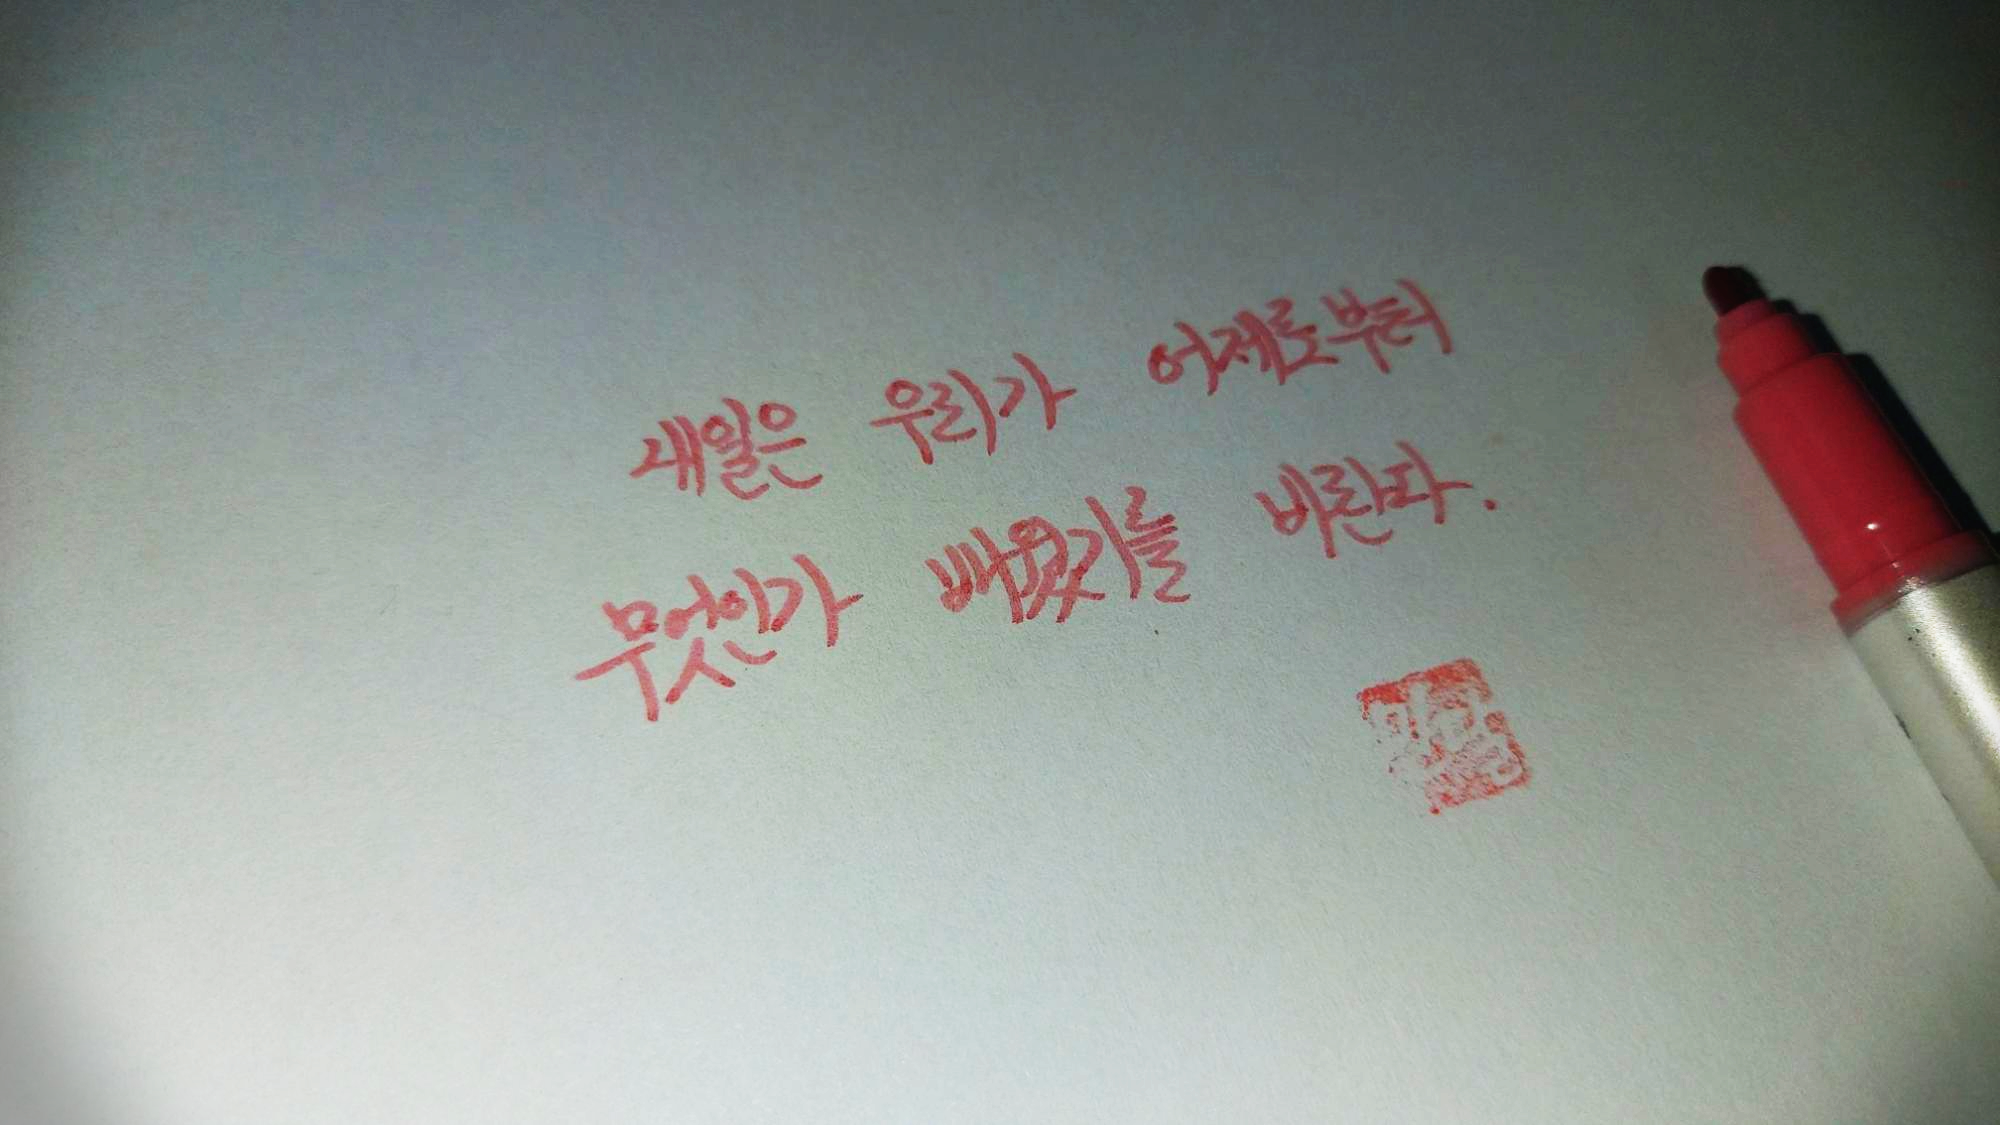 내일은 우리가 어제로부터
무엇인가 배웠기를 바란다.